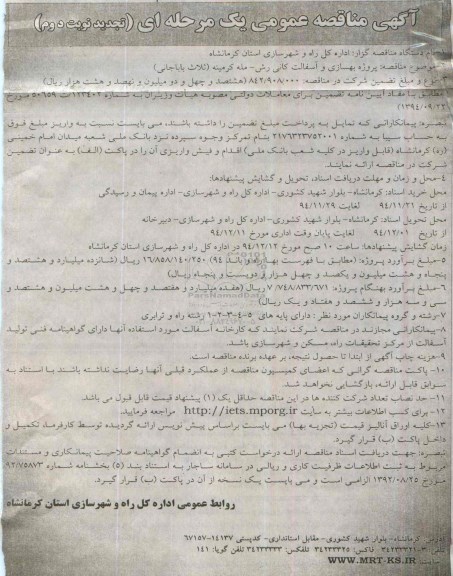 آگهی مناقصه عمومی یک مرحله ای (تجدید نوبت دوم)
نام دستگاه مناقصه گزار: اداره کل راه و شهرسازی استان کرمانشاه
موضوع مناقصه: پروژه بهسازی و آسفالت کانی رش- مله کرمینه (ثلاث باباجانی)
نوع و مبلغ تضمین شرکت در مناقصه: ۸۴۲/۹۰۸/۰۰۰ (هشتصد و چهل و دو میلیون و نهصد و هشت هزار ریال)
مطابق با مفاد آیین نامه تضمین برای معاملات دولتی مصوبه هیأت وزیران به شماره ۱۲۳۴۰۲/ت ۵۰۶۵۹ مورخ
(۱۳۹۴/۰۹/۲۲)
تبصره: پیمانکارانی که تمایل به پرداخت مبلغ تضمین را داشته باشند، می بایست نسبت به واریز مبلغ فوق
به حساب سیبا به شماره ۲۱۷۶۴۲۳۷۵۲۰۰۱ بنام تمرکز وجوه سپرده نزد بانک ملی شعبه میدان امام خمینی
(ره) کرمانشاه (قابل واریز در کلیه شعب بانک ملی) اقدام و فیش واریزی آن را در پاکت (الف) به عنوان تضمین
شرکت در مناقصه ارائه نمایند.
۴-محل و زمان و مهلت دریافت اسناد، تحویل و گشایش پیشنهادها:
محل خرید اسناد: کرمانشاه- بلوار شهید کشوری- اداره کل راه و شهرسازی- اداره پیمان و رسیدگی
از تاریخ ۹۴/۱۱/۲۱ لغایت ۹۴/۱۱/۲۹
محل تحویل اسناد: کرمانشاه- بلوار شهید کشوری- اداره کل راه و شهرسازی- دبیرخانه
از تاریخ ۹۴/۱۲/۰۱ لغایت پایان وقت اداری مورخ ۹۴/۱۲/۱۱
زمان گشایش پیشنهادها: ساعت ۱۰ صبح مورخ ۹۴/۱۲/۱۲ در اداره کل راه و شهرسازی استان کرمانشاه
۵-مبلغ برآورد پروژه: (مطابق با فهرست بهاء راه و باند ۹۴) ۱۶/۸۵۸/۱۴۰/۲۵۰ ریال (شانزده میلیارد و هشتصد و
پنجاه و هشت میلیون و یکصد و چهل هزار و دویست و پنجاه ریال)
۶-مبلغ برآورد بهنگام پروژه: ۷/۷۴۸/۸۳۳/۶۷۱ ریال (هفده میلیارد و هفتصد و چهل و هشت میلیون و هشتصد و
سی و سه هزار و ششصد و هفتاد و یک ریال)
۷-رشته و گروه پیمانکاران مورد نظر: دارای پایه های ۵-۴-۳-۲-۱ رشته راه و ترابری
۸-پیمانکارانی مجازند در مناقصه شرکت نمایند که کارخانه آسفالت مورد استفاده آنها دارای گواهینامه فنی تولید
آسفالت از مرکز تحقیقات راه، مسکن و شهرسازی باشد.
۹-هزینه چاپ آگهی از ابتدا تا حصول نتیجه، بر عهده برنده مناقصه است.
۱۰- پاکت مناقصه گرانی که اعضای کمیسیون مناقصه از عملکرد قبلی آنها رضایت نداشته باشند با استناد به
سوابق قابل ارائه، بازگشایی نخواهد شد.
۱۱- حد نصاب تعداد شرکت کننده ها در این مناقصه حداقل یک (۱) پیشنهاد قیمت قابل قبول می باشد.
۱۲- برای کسب اطلاعات بیشتر به سایت http://iets.mporg.ir مراجعه فرمایید.
۱۳-کلیه اوراق آنالیز قیمت (تجزیه بها) می بایست براساس پیش نویس ارائه گردیده توسط کارفرما، تکمیل و
داخل پاکت (ب) قرار گیرد.
تبصره: جهت دریافت اسناد مناقصه ارائه درخواست کتبی به انضمام گواهینامه صلاحیت پیمانکاری و مستندات
مربوط به ثبت اطلاعات ظرفیت کاری و ریالی در سامانه ساجار به استناد بند (۵) بخشنامه شماره ۹۲/۷۵۸۷۳
مورخ ۱۳۹۲/۰۸/۲۵ الزامی است و می بایست یک نسخه از آن در پاکت (ب) قرار گیرد.
روابط عمومی اداره کل راه و شهرسازی استان کرمانشاه
آدرس: کرمانشاه- بلوار شهید کشوری- مقابل استانداری- کدپستی ۱۴۱۳۷-۶۷۱۵۷
تلفن: ۳-۳۴۲۳۳۲۱ فاکس: ۳۴۲۳۳۲۲۵ تلفکس: ۳۴۲۳۳۳۳۳ تلفن گویا: ۱۴۱
سایت: WWW.MRT-KS.IR
ParsNamadData